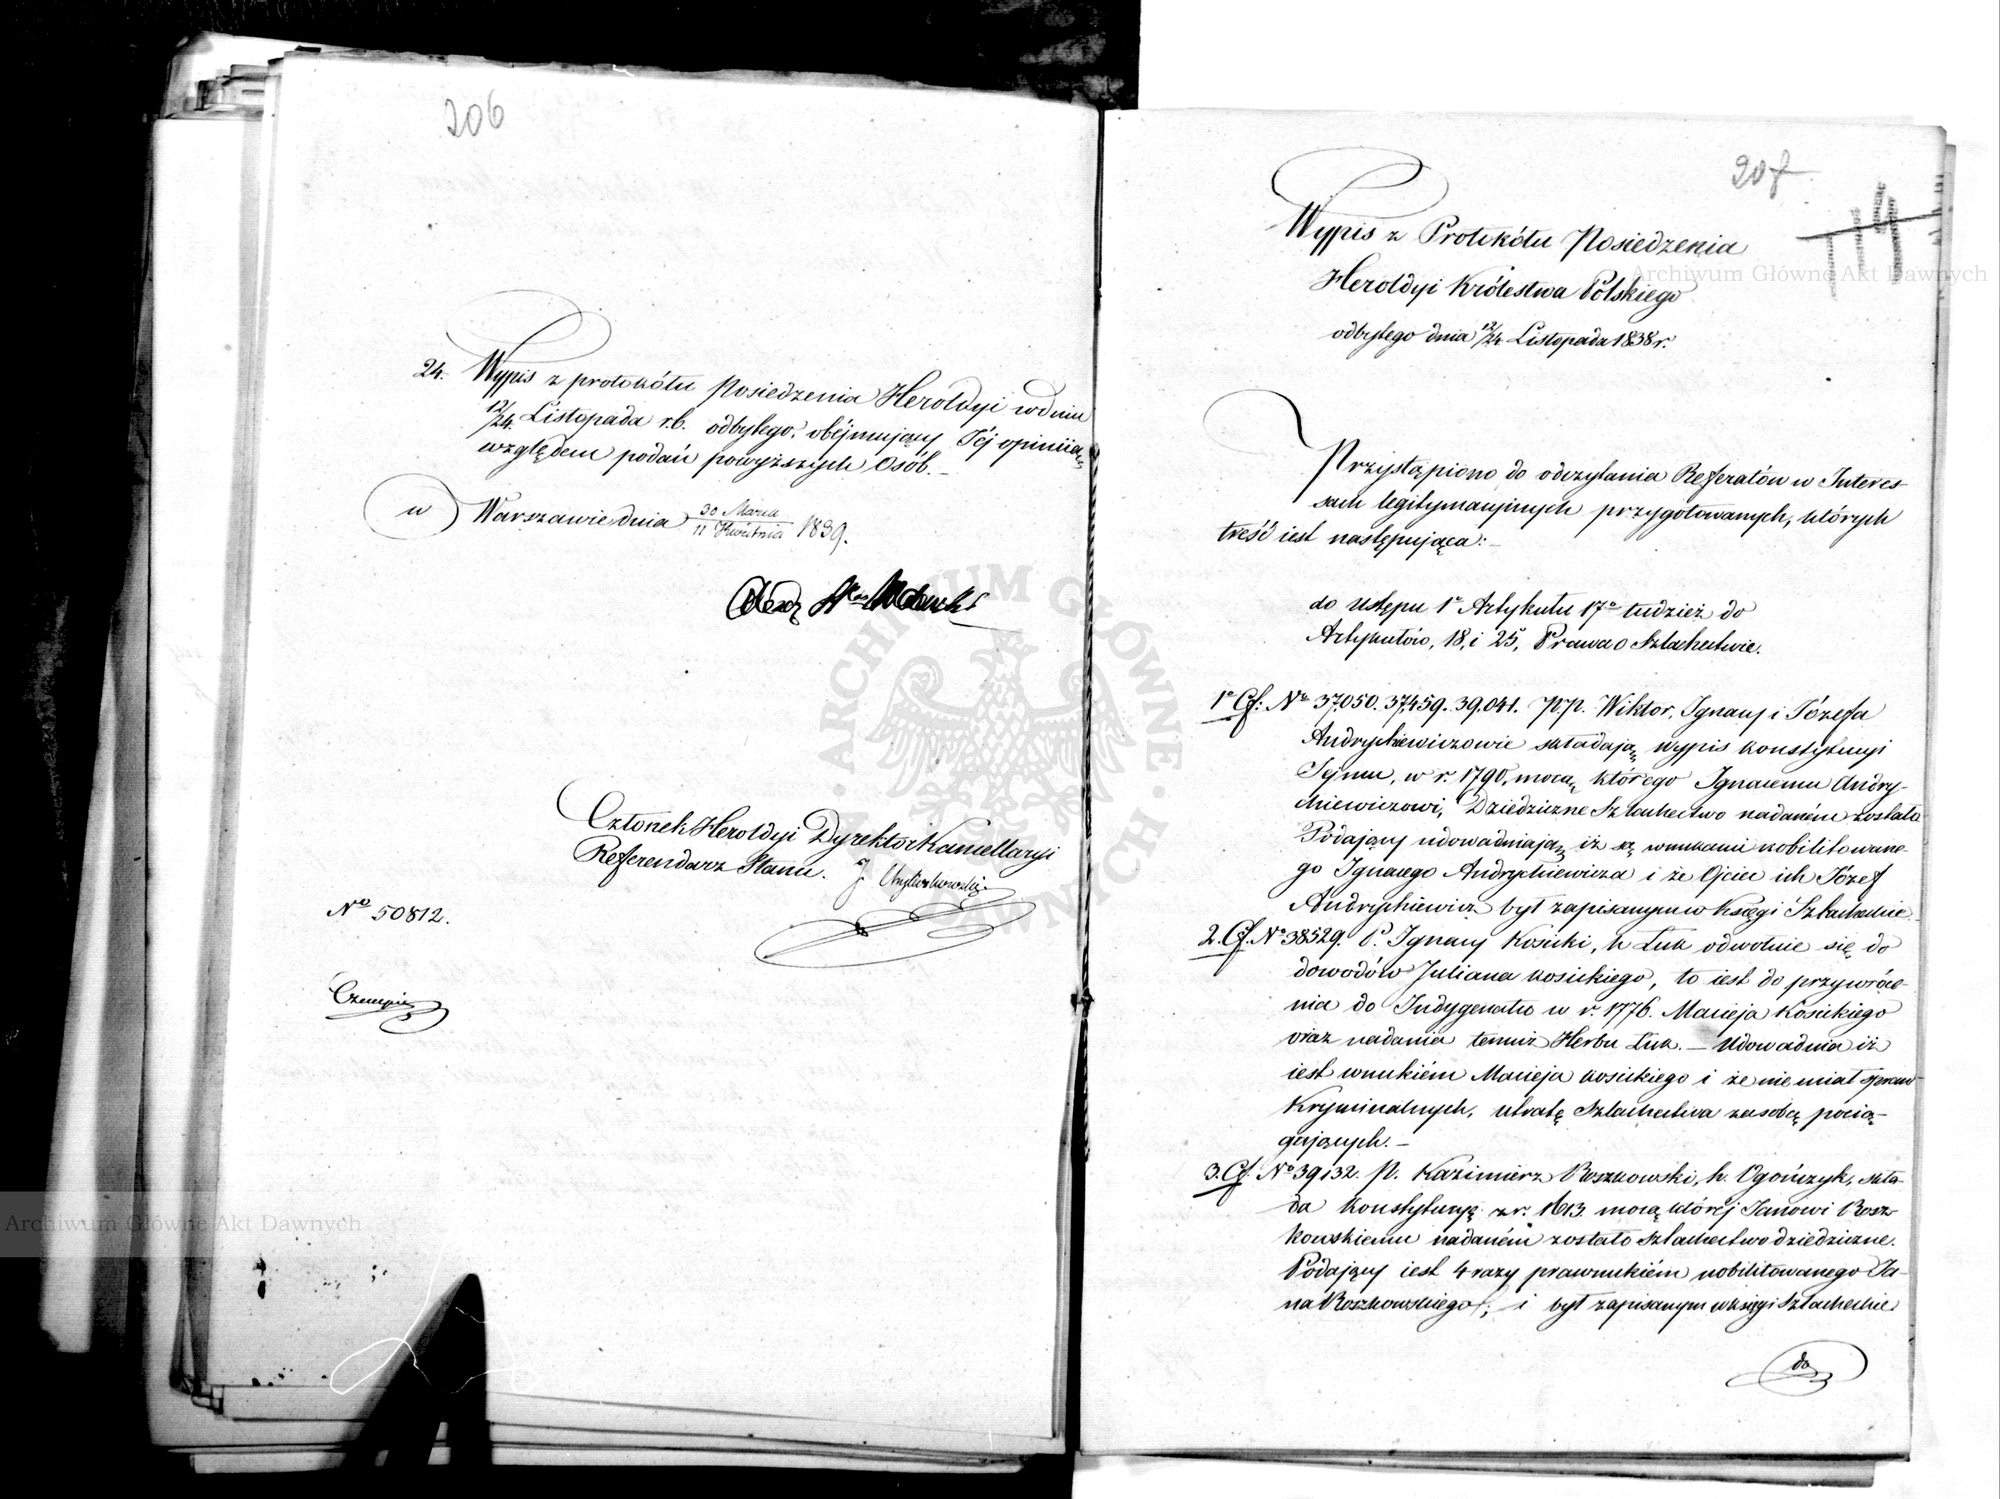 206
24. Wypis z protokółu Posiedzenia Heroldyi w dniu
12/24 Listopada r.b. odbytego, obéjmujący Jéj opiniią
względem podań powyższych Osób. _
w Warszawie dnia 30 Marca / 11 Kwietnia 1839.
Członek Heroldyi Dyrektor Kancellaryi
Referendarz Stanu.
No 50812.
207
119
Wypis z Protokółu Posiedzenia
Heroldyi Królestwa Polskiego
odbytego dnia 12/24 Listopada 1838 r.
Przystąpiono do odczytania Referatów w Interes-
sach legitymacyjnych przygotowanych, których
treść iest następująca: _
do Ustępu 1o Artykułu 17o tudzież do
Artykułów, 18, i 25, Prawa o Szlachectwie.
1o Cf: No 37,050. 37,459. 39,041. P.P. Wiktor, Ignacy i Józefa
Andrychiewiczowie składają wypis konstytucyi
Sejmu, w r. 1790, mocą którego Ignacemu Andry-
chiewiczowi, Dziedziczne Szlachectwo nadaném zostało
Podający udowadniają iż są wnukami nobilitowane-
go Ignacego Andrychiewicza i że Ojciec ich Józef
Andrychiewicz był zapisanym w Księgi Szlacheckie.
2. Cf. No 38529. P. Ignacy Kosicki, h Łuk odwołuie się do
dowodów Juliana Kosickiego, to iest do przywróce-
nia do Indygenatu w r. 1776. Macieja Kosickiego
oraz nadania temuż Herbu Łuk. _ Udowadnia iż
iest wnukiém Macieja Kosickiego i że nie miał spraw
Kryminalnych, utratę Szlachectwa za sobą pocią-
gających. _
3. Cf. No 39132. P. Kazimierz Roszkowski, h. Ogończyk, skła-
da Konstytucyę z r. 1613. mocą któréj Janowi Rosz-
kowskiemu nadaném zostało Szlachectwo dziedziczne.
Podający iest 4 razy prawnukiém nobilitowanego Ja-
na Roszkowskiego; i był zapisanym w księgi Szlacheckie
do
Archiwum Główne Akt Dawnych
Archiwum Główne Akt Dawnych
ARCHIWUM GŁÓWNE AKT DAWNYCH